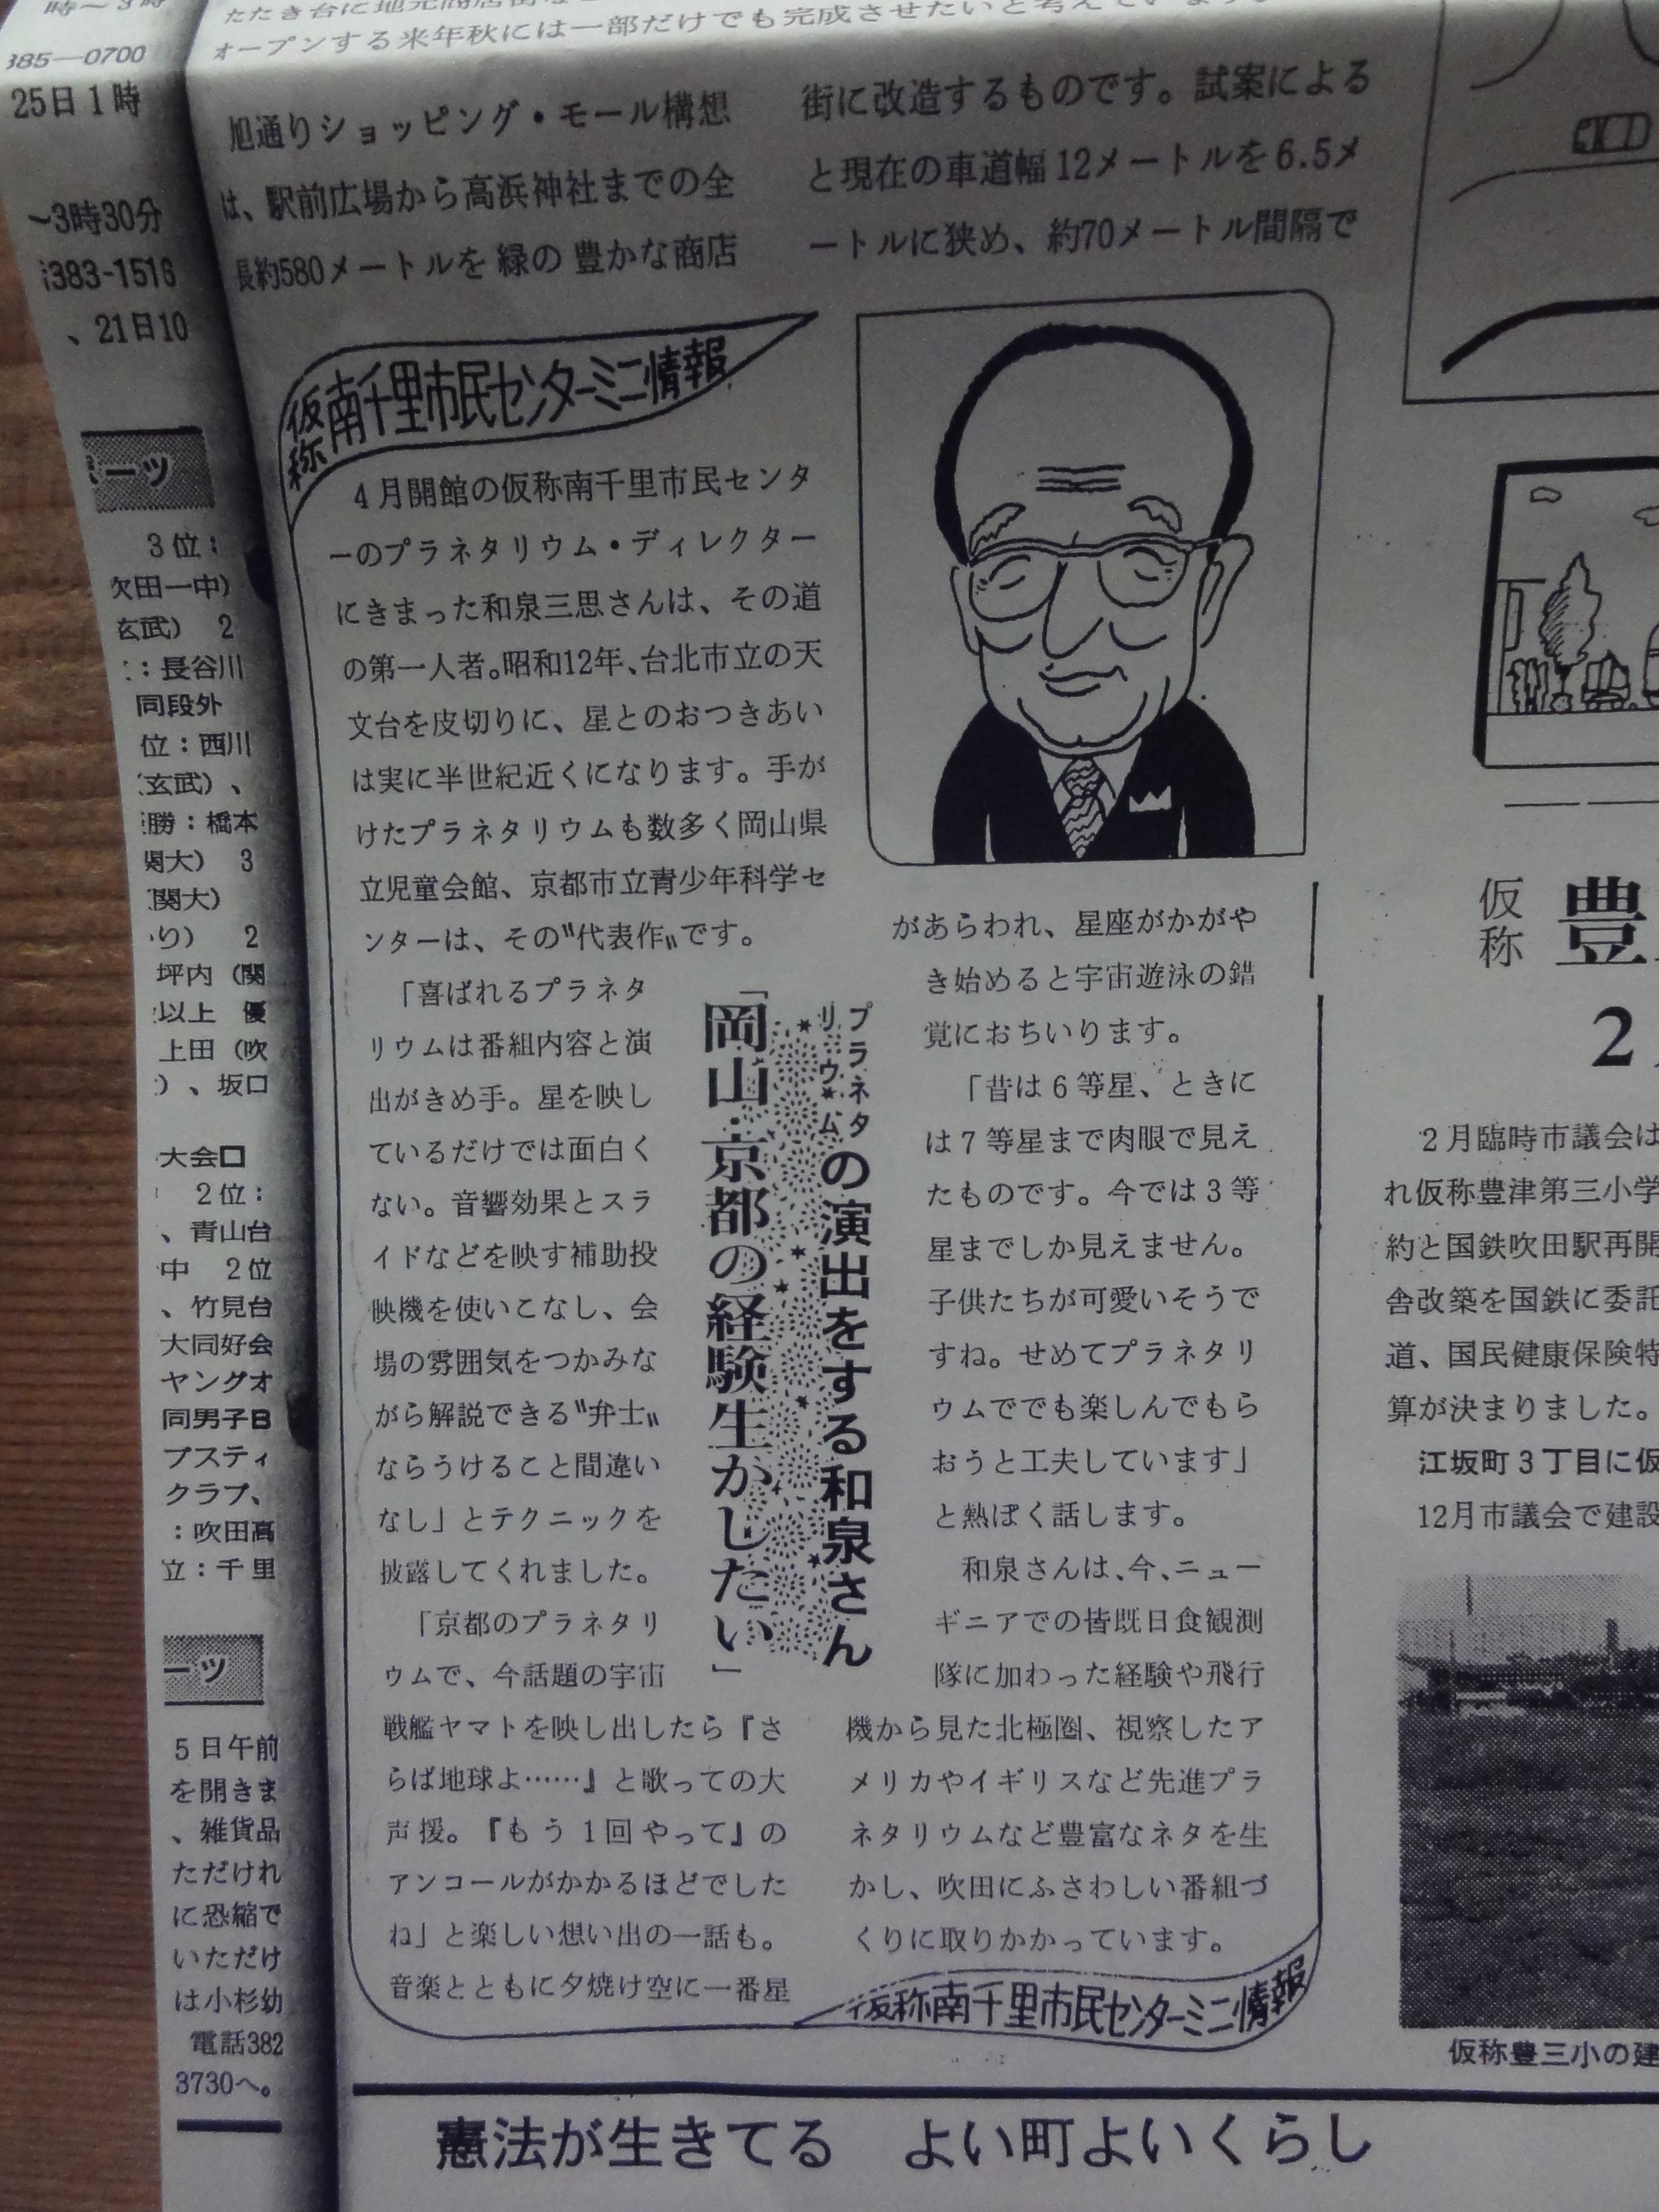 385―0700
25日1時
～3時30分
383-1516
、21日10
ーツ
3位：
欠田一中）
玄武） 2
：長谷川
同段外
位：西川
玄武）、
勝：橋本
関大） 3
関大）
り） 2
坪内（関
以上 優
上田（吹
）、坂口
大会口
2位：
、青山台
中 2位
、竹見台
大同好会
ヤングオ
同男子B
プスティ
クラブ、
：吹田高
立：千里
ーツ
5日午前
を開きま
、雑貨品
ただけれ
に恐縮で
いただけ
は小杉幼
電話382
3730へ。
オープンする来年秋には一部だけでも完成させたいと考えています。
旭通りショッピング・モール構想
は、駅前広場から高浜神社までの全
長約580メートルを緑の豊かな商店
街に改造するものです。試案による
と現在の車道幅12メートルを6.5メ
ートルに狭め、約70メートル間隔で
仮称南千里市民センターミニ情報
4月開館の仮称南千里市民センタ
ーのプラネタリウム・ディレクター
にきまった和泉三思さんは、その道
の第一人者。昭和12年、台北市立の天
文台を皮切りに、星とのおつきあい
は実に半世紀近くになります。手が
けたプラネタリウムも数多く岡山県
立児童会館、京都市立青少年科学セ
ンターは、その〝代表作〟です。
プラネタリウムの演出をする和泉さん
「岡山・京都の経験生かしたい」
「喜ばれるプラネタ
リウムは番組内容と演
出がきめ手。星を映し
ているだけでは面白く
ない。音響効果とスラ
イドなどを映す補助投
映機を使いこなし、会
場の雰囲気をつかみな
がら解説できる〝弁士〟
ならうけること間違い
なし」とテクニックを
披露してくれました。
「京都のプラネタリ
ウムで、今話題の宇宙
戦艦ヤマトを映し出したら『さ
らば地球よ……』と歌っての大
声援。『もう1回やって』の
アンコールがかかるほどでした
ね」と楽しい想い出の一話も。
音楽とともに夕焼け空に一番星
があらわれ、星座がかがや
き始めると宇宙遊泳の錯
覚におちいります。
「昔は6等星、ときに
は7等星まで肉眼で見え
たものです。今では3等
星までしか見えません。
子供たちが可愛いそうで
すね。せめてプラネタリ
ウムででも楽しんでもら
おうと工夫しています」
と熱ぽく話します。
和泉さんは、今、ニュー
ギニアでの皆既日食観測
隊に加わった経験や飛行
機から見た北極圏、視察したア
メリカやイギリスなど先進プラ
ネタリウムなど豊富なネタを生
かし、吹田にふさわしい番組づ
くりに取りかかっています。
仮称南千里市民センターミニ情報
仮称 豊
2
2月臨時市議会は
れ仮称豊津第三小学
約と国鉄吹田駅再開
舎改築を国鉄に委託
道、国民健康保険特
算が決まりました。
江坂町3丁目に仮
12月市議会で建設
仮称豊三小の建
憲法が生きてる よい町よいくらし